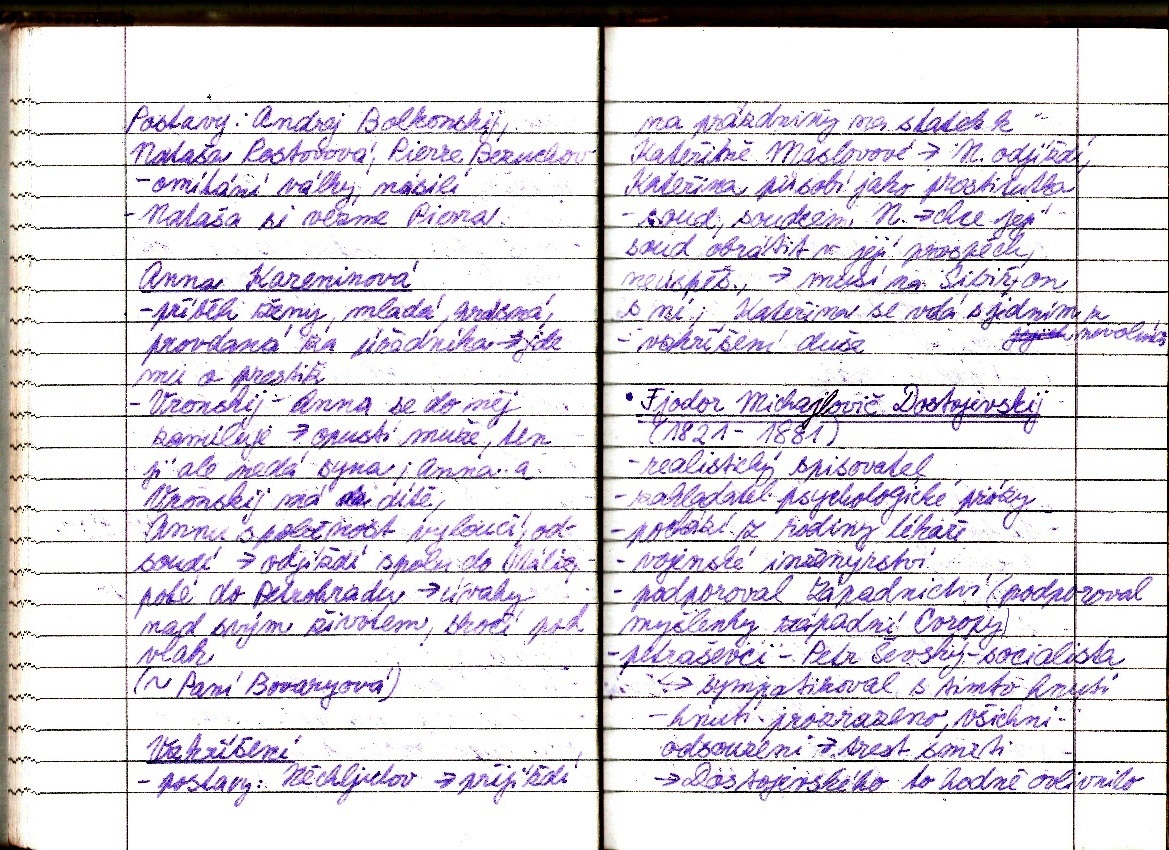 Postavy: Andrej Bolkonskij,
Nataša Rostovová, Pierre Bezuchov
- omítání války, násilí
- Nataša si vezme Pierra
Anna Kareninová
- příběh ženy, mladá, krásná,
provdaná za úředníka → jde
mu o prestiž
- Vronskij - Anna se do něj
zamiluje → opustí muže, ten
jí ale nedá syna; Anna a
Vronskij má dítě,
Annu společnost vyloučí, od-
soudí → odjíždí spolu do Itálie,
poté do Petrohradu → úvahy
nad svým životem, skočí pod
vlak
(~ Paní Bovaryová)
Vzkříšení
- postavy: Něchljudov → přijíždí
na prázdniny na statek k
Kateřině Maslovové → N. odjíždí,
Kateřina působí jako prostitutka
- soud, soudcem N. → chce její
soud obrátit v její prospěch,
neúspěš., → musí na Sibiř, on
s ní; Kateřina se vdá s jedním z
nevolníků
- vzkříšení duše
• Fjodor Michajlovič Dostojevskij
(1821 - 1881)
- realistický spisovatel
- zakladatel psychologické prózy
- pochází z rodiny lékaře
- vojenské inženýrství
- podporoval západnictví (podporoval
myšlenky západní Evropy)
- petraševci - Petr Ševský - socialista
↳ sympatikoval s tímto hnutí
- hnutí prozrazeno, všichni
odsouzeni → trest smrti
→ Dostojevského to hodně ovlivnilo